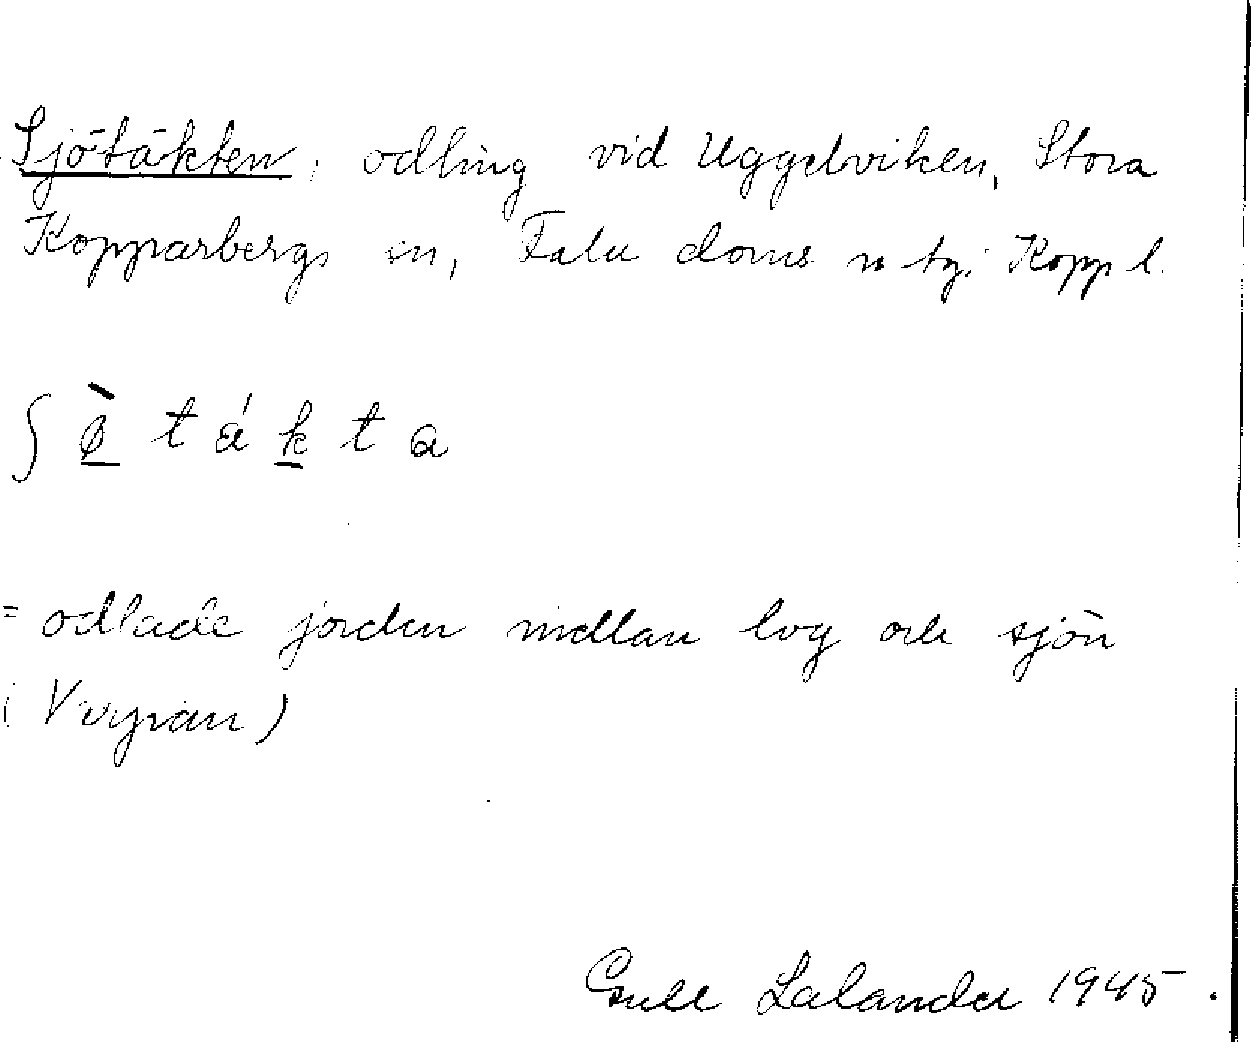 Sjötäkten, odling vid Uggelviken, Stora
Kopparbergs sn, Falu doms o tg. Kopp l.
ʃ ø̀ t á k t a
= odlade jorden mellan log och sjön
(Varpan)
Lalander 1945.